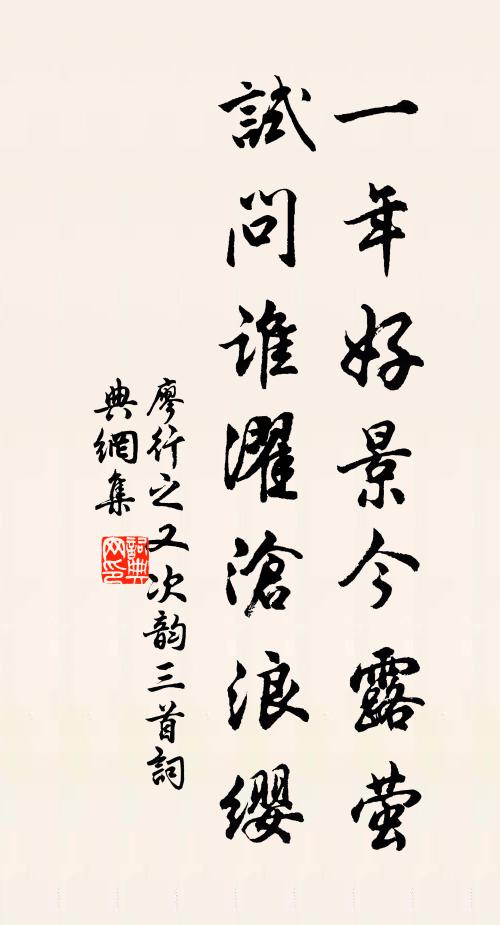 一年好景今露萤
試問谁濯滄浪缨
廖行之又次韵三首詞
典網集
詞典网印